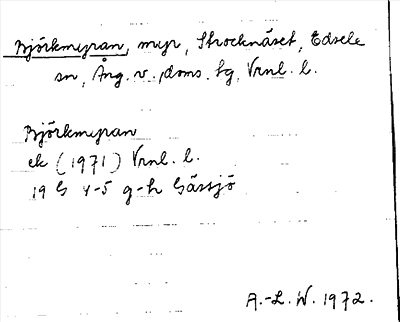 Björkmyran, myr, Strocknäset, Edsele
sn, Ång. v. doms. lg, Vrnl. l.
Björkmyran
ek (1971) Vrnl. l.
19 G 4-5 g-h Gåssjö
A.-L. W. 1972.